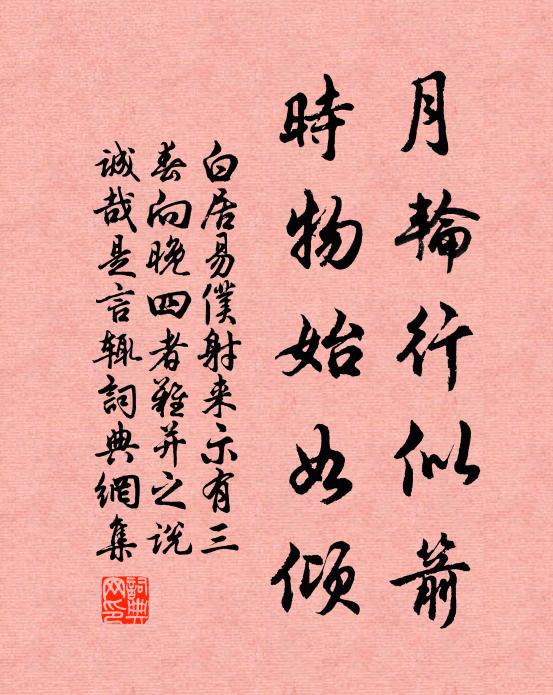 月輪行似箭
時物始如傾
白居易僕射来示有三
春向晚四者難并之说
诚哉是言輒詞典網集
詞典网印